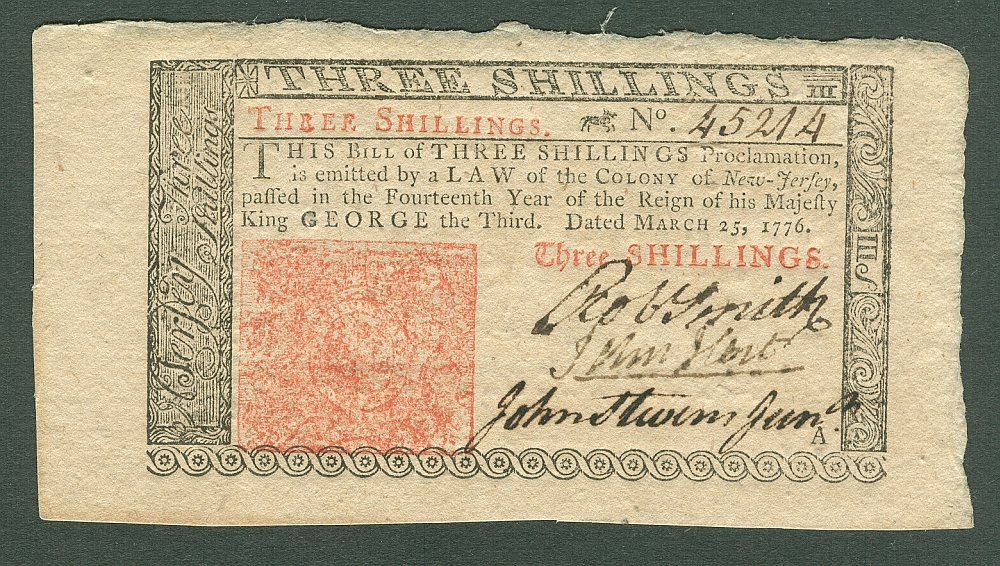 THREE SHILLINGS III
THREE SHILLINGS. No. 45214
THIS BILL of THREE SHILLINGS Proclamation,
is emitted by a LAW of the COLONY of New-Jerſey,
paſſed in the Fourteenth Year of the Reign of his Majeſty
King GEORGE the Third. Dated MARCH 25, 1776.
Three SHILLINGS.
Rob Smith
John Hart
John Stevens Junr.
A
N Jerſey Three
Shillings
III S